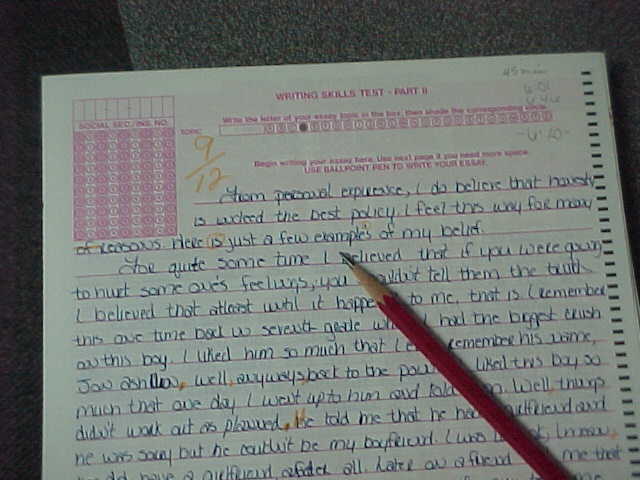 45 min
WRITING SKILLS TEST - PART II
Write the letter of your essay topic in the box, then shade the corresponding circle.
SOCIAL SEC./INS. NO.
TOPIC
9/12
Begin writing your essay here. Use next page if you need more space.
USE BALLPOINT PEN TO WRITE YOUR ESSAY.
From personal experience, I do believe that honesty
is indeed the best policy. I feel this way for many
of reasons. Here is just a few examples of my belief.
For quite some time I believed that if you were going
to hurt some one's feelings, you couldn't tell them the truth.
I believed that atleast until it to me, that is I remember
this one time back in seventh grade I had the biggest crush
on this boy. I liked him so much that I remember his name,
well, anyways, back to the I liked this boy so
much that one day I went up to him and told Well, things
didn't work out as planned, He told me that he girlfriend and
he was sorry but he couldn't be my boyfriend. I was I know,
have a girlfriend all. Later on a friend me that